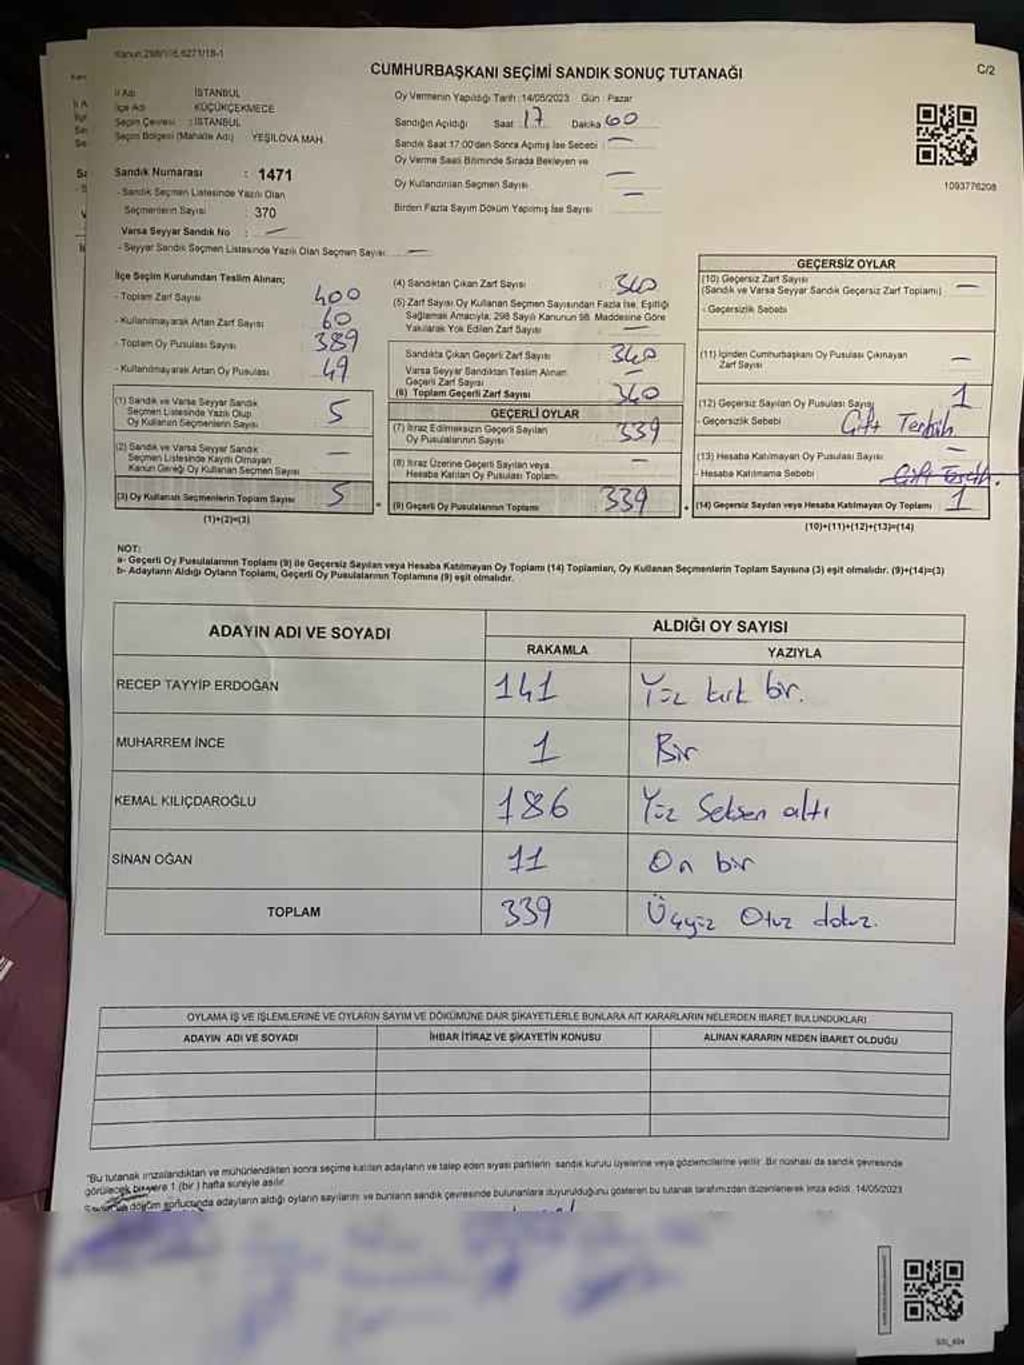 CUMHURBAŞKANI SEÇİMİ SANDIK SONUÇ TUTANAĞI
C/2
İl Adı İSTANBUL
İlçe Adı KÜÇÜKÇEKMECE
Seçim Çevresi : İSTANBUL
Seçim Bölgesi (Mahalle Adı) YEŞİLOVA MAH.
Sandık Numarası : 1471
- Sandık Seçmen Listesinde Yazılı Olan
Seçmenlerin Sayısı : 370
Varsa Seyyar Sandık No : —
- Seyyar Sandık Seçmen Listesinde Yazılı Olan Seçmen Sayısı : —
Oy Vermenin Yapıldığı Tarih :14/05/2023 Gün : Pazar
Sandığın Açıldığı Saat : 17 Dakika 00
Sandık Saat 17.00'den Sonra Açılmış İse Sebebi : —
Oy Verme Saati Bitiminde Sırada Bekleyen ve
Oy Kullandırılan Seçmen Sayısı —
Birden Fazla Sayım Döküm Yapılmış İse Sayısı —
1093776208
İlçe Seçim Kurulundan Teslim Alınan;
- Toplam Zarf Sayısı 400
- Kullanılmayarak Artan Zarf Sayısı 60
- Toplam Oy Pusulası Sayısı 389
- Kullanılmayarak Artan Oy Pusulası 49
(1) Sandık ve Varsa Seyyar Sandık
Seçmen Listesinde Yazılı Olup
Oy Kullanan Seçmenlerin Sayısı 5
(2) Sandık ve Varsa Seyyar Sandık
Seçmen Listesinde Kayıtlı Olmayan
Kanun Gereği Oy Kullanan Seçmen Sayısı —
(3) Oy Kullanan Seçmenlerin Toplam Sayısı 5
(1)+(2)=(3)
(4) Sandıktan Çıkan Zarf Sayısı 340
(5) Zarf Sayısı Oy Kullanan Seçmen Sayısından Fazla İse, Eşitliği
Sağlamak Amacıyla, 298 Sayılı Kanunun 98. Maddesine Göre
Yakılarak Yok Edilen Zarf Sayısı —
Sandıkta Çıkan Geçerli Zarf Sayısı 340
Varsa Seyyar Sandıktan Teslim Alınan
Geçerli Zarf Sayısı —
(6) Toplam Geçerli Zarf Sayısı 340
GEÇERLİ OYLAR
(7) İtiraz Edilmeksizin Geçerli Sayılan
Oy Pusulalarının Sayısı 339
(8) İtiraz Üzerine Geçerli Sayılan veya
Hesaba Katılan Oy Pusulası Toplamı —
(9) Geçerli Oy Pusulalarının Toplamı 339
GEÇERSİZ OYLAR
(10) Geçersiz Zarf Sayısı
(Sandık ve Varsa Seyyar Sandık Geçersiz Zarf Toplamı) —
- Geçersizlik Sebebi
(11) İçinden Cumhurbaşkanı Oy Pusulası Çıkmayan
Zarf Sayısı —
(12) Geçersiz Sayılan Oy Pusulası Sayısı 1
- Geçersizlik Sebebi Çift Tercih
(13) Hesaba Katılmayan Oy Pusulası Sayısı —
- Hesaba Katılmama Sebebi Çift Tercih.
(14) Geçersiz Sayılan veya Hesaba Katılmayan Oy Toplamı 1
(10)+(11)+(12)+(13)=(14)
NOT:
a- Geçerli Oy Pusulalarının Toplamı (9) ile Geçersiz Sayılan veya Hesaba Katılmayan Oy Toplamı (14) Toplamları, Oy Kullanan Seçmenlerin Toplam Sayısına (3) eşit olmalıdır. (9)+(14)=(3)
b- Adayların Aldığı Oyların Toplamı, Geçerli Oy Pusulalarının Toplamına (9) eşit olmalıdır.
ADAYIN ADI VE SOYADI ALDIĞI OY SAYISI
RAKAMLA YAZIYLA
RECEP TAYYİP ERDOĞAN 141 Yüz kırk bir.
MUHARREM İNCE 1 Bir
KEMAL KILIÇDAROĞLU 186 Yüz Seksen altı
SİNAN OĞAN 11 On bir
TOPLAM 339 Üçyüz Otuz dokuz.
OYLAMA İŞ VE İŞLEMLERİNE VE OYLARIN SAYIM VE DÖKÜMÜNE DAİR ŞİKAYETLERLE BUNLARA AİT KARARLARIN NELERDEN İBARET BULUNDUKLARI
ADAYIN ADI VE SOYADI İHBAR İTİRAZ VE ŞİKAYETİN KONUSU ALINAN KARARIN NEDEN İBARET OLDUĞU
"Bu tutanak imzalandıktan ve mühürlendikten sonra seçime katılan adayların ve talep eden siyasi partilerin sandık kurulu üyelerine veya gözlemcilerine verilir. Bir nüshası da sandık çevresinde
görülecek bir yere 1 (bir) hafta süreyle asılır.
döküm sonucunda adayların aldığı oyların sayılarını ve bunların sandık çevresinde bulunanlara duyurulduğunu gösteren bu tutanak tarafımızdan düzenlenerek imza edildi. 14/05/2023